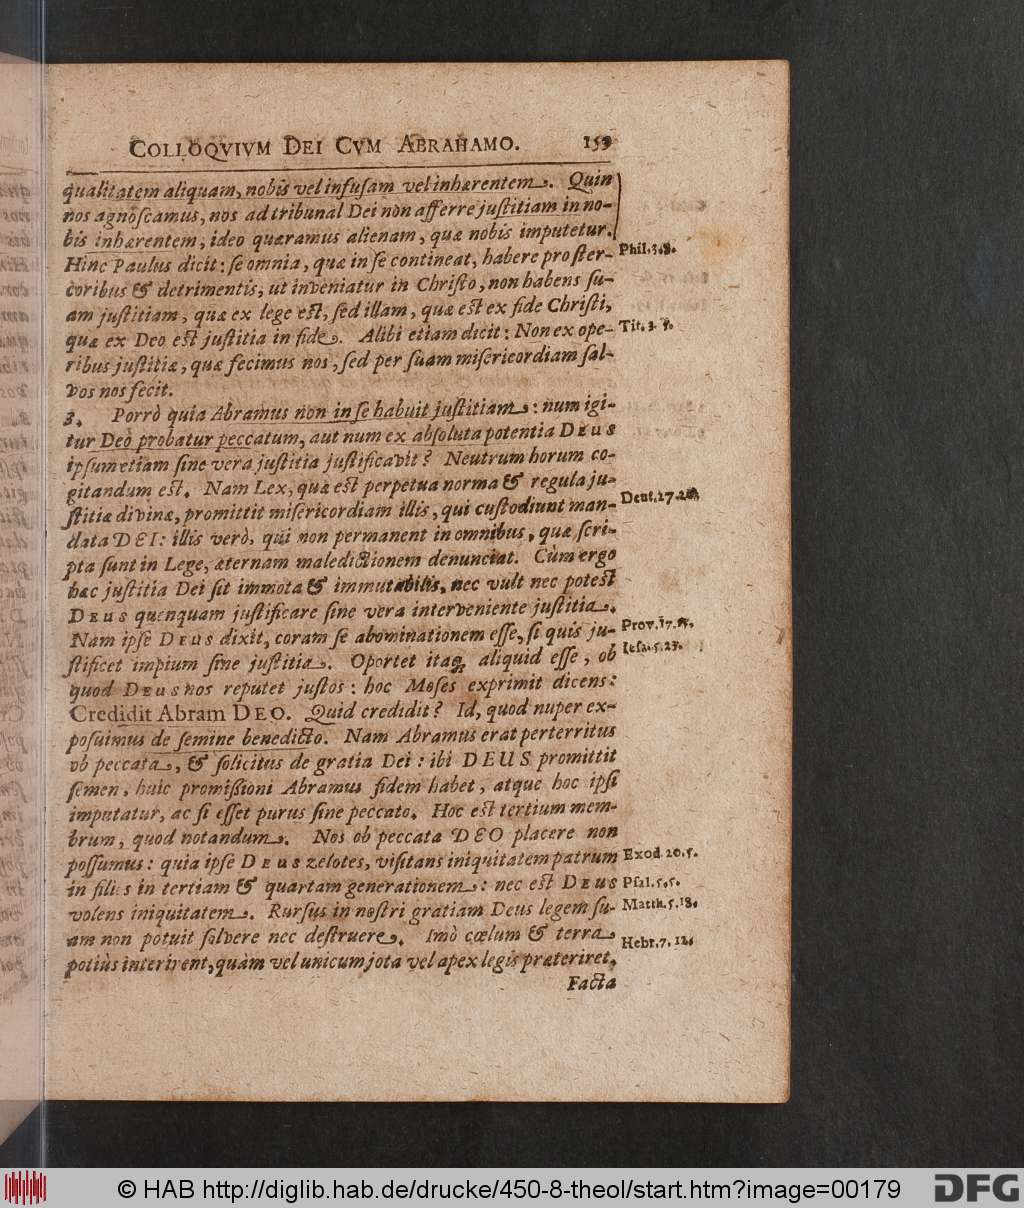 COLLOQVIVM DEI CVM ABRAHAMO. 159
qualitatem aliquam, nobis vel infusam vel inhærentem. Quin
nos agnoscamus, nos ad tribunal Dei non afferre justitiam in no-
bis inhærentem, ideo quæramus alienam, quæ nobis imputetur.
Hinc Paulus dicit: se omnia, quæ in se contineat, habere pro ster- Phil. 3.8.
coribus & detrimentis, ut inveniatur in Christo, non habens su-
am justitiam, quæ ex lege est, sed illam, quæ est ex fide Christi,
quæ ex Deo est justitia in fide. Alibi etiam dicit: Non ex ope- Tit. 3. 5.
ribus justitiæ, quæ fecimus nos, sed per suam misericordiam sal-
vos nos fecit.
3. Porrò quia Abramus non in se habuit justitiam: num igi-
tur Deo probatur peccatum, aut num ex absoluta potentia DEUS
ipsum etiam sine vera justitia justificavit? Neutrum horum co-
gitandum est. Nam Lex, quæ est perpetua norma & regula ju-
stitiæ divinæ, promittit misericordiam illis, qui custodiunt man- Deut. 27.
data DEI: illis verò, qui non permanent in omnibus, quæ scri-
pta sunt in Lege, æternam maledictionem denunciat. Cùm ergo
hac justitia Dei sit immota & immutabilis, nec vult nec potest
DEUS quenquam justificare sine vera interveniente justitia.
Nam ipse DEUS dixit, coram se abominationem esse, si quis ju- Prov. 17. 15.
stificet impium sine justitia. Oportet itaq; aliquid esse, ob Iesa. 5. 23.
quod DEUS nos reputet justos: hoc Moses exprimit dicens:
Credidit Abram DEO. Quid credidit? Id, quod nuper ex-
posuimus de semine benedicto. Nam Abramus erat perterritus
ob peccata, & solicitus de gratia Dei: ibi DEUS promittit
semen, huic promissioni Abramus fidem habet, atque hoc ipsi
imputatur, ac si esset purus sine peccato. Hoc est tertium mem-
brum, quod notandum. Nos ob peccata DEO placere non
possumus: quia ipse DEUS zelotes, visitans iniquitatem patrum Exod. 20. 5.
in filiis in tertiam & quartam generationem: nec est DEUS Psal. 5. 5.
volens iniquitatem. Rursus in nostri gratiam Deus legem su- Matth. 5. 18.
am non potuit solvere nec destruere. Imò cœlum & terra Hebr. 7. 12.
potiùs interirent, quàm vel unicum jota vel apex legis præteriret,
Facta
© HAB http://diglib.hab.de/drucke/450-8-theol/start.htm?image=00179 DFG